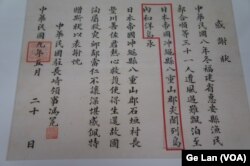 感謝狀
中華民國八年冬福建省惠安縣漁民
郭合順等三十一人遭風遇難飄泊至
日本帝國沖繩縣八重山郡尖閣列島
內和洋島承
日本帝國沖繩縣八重山郡石垣村
熱心救護使得生還故國
洵屬救災恤鄰當仁不讓深堪感佩特
贈斯狀以表謝忱
中華民國駐長崎領事馮冕
中華民國九年五月二十日
Ge Lan (VOA)